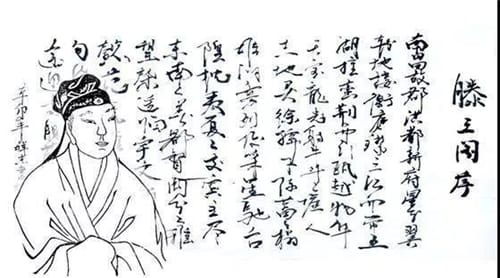 滕王阁序
南昌故郡洪都新府星分翼
轸地接衡庐襟三江而带五
湖控蛮荆而引瓯越物华
天宝龙光射斗之墟人
杰地灵徐孺下陈蕃之榻
雄州雾列俊采星驰台
隍枕夷夏之交宾主尽
东南之美都督阎公之雅
望棨遥临宇文
懿范
辛卯年